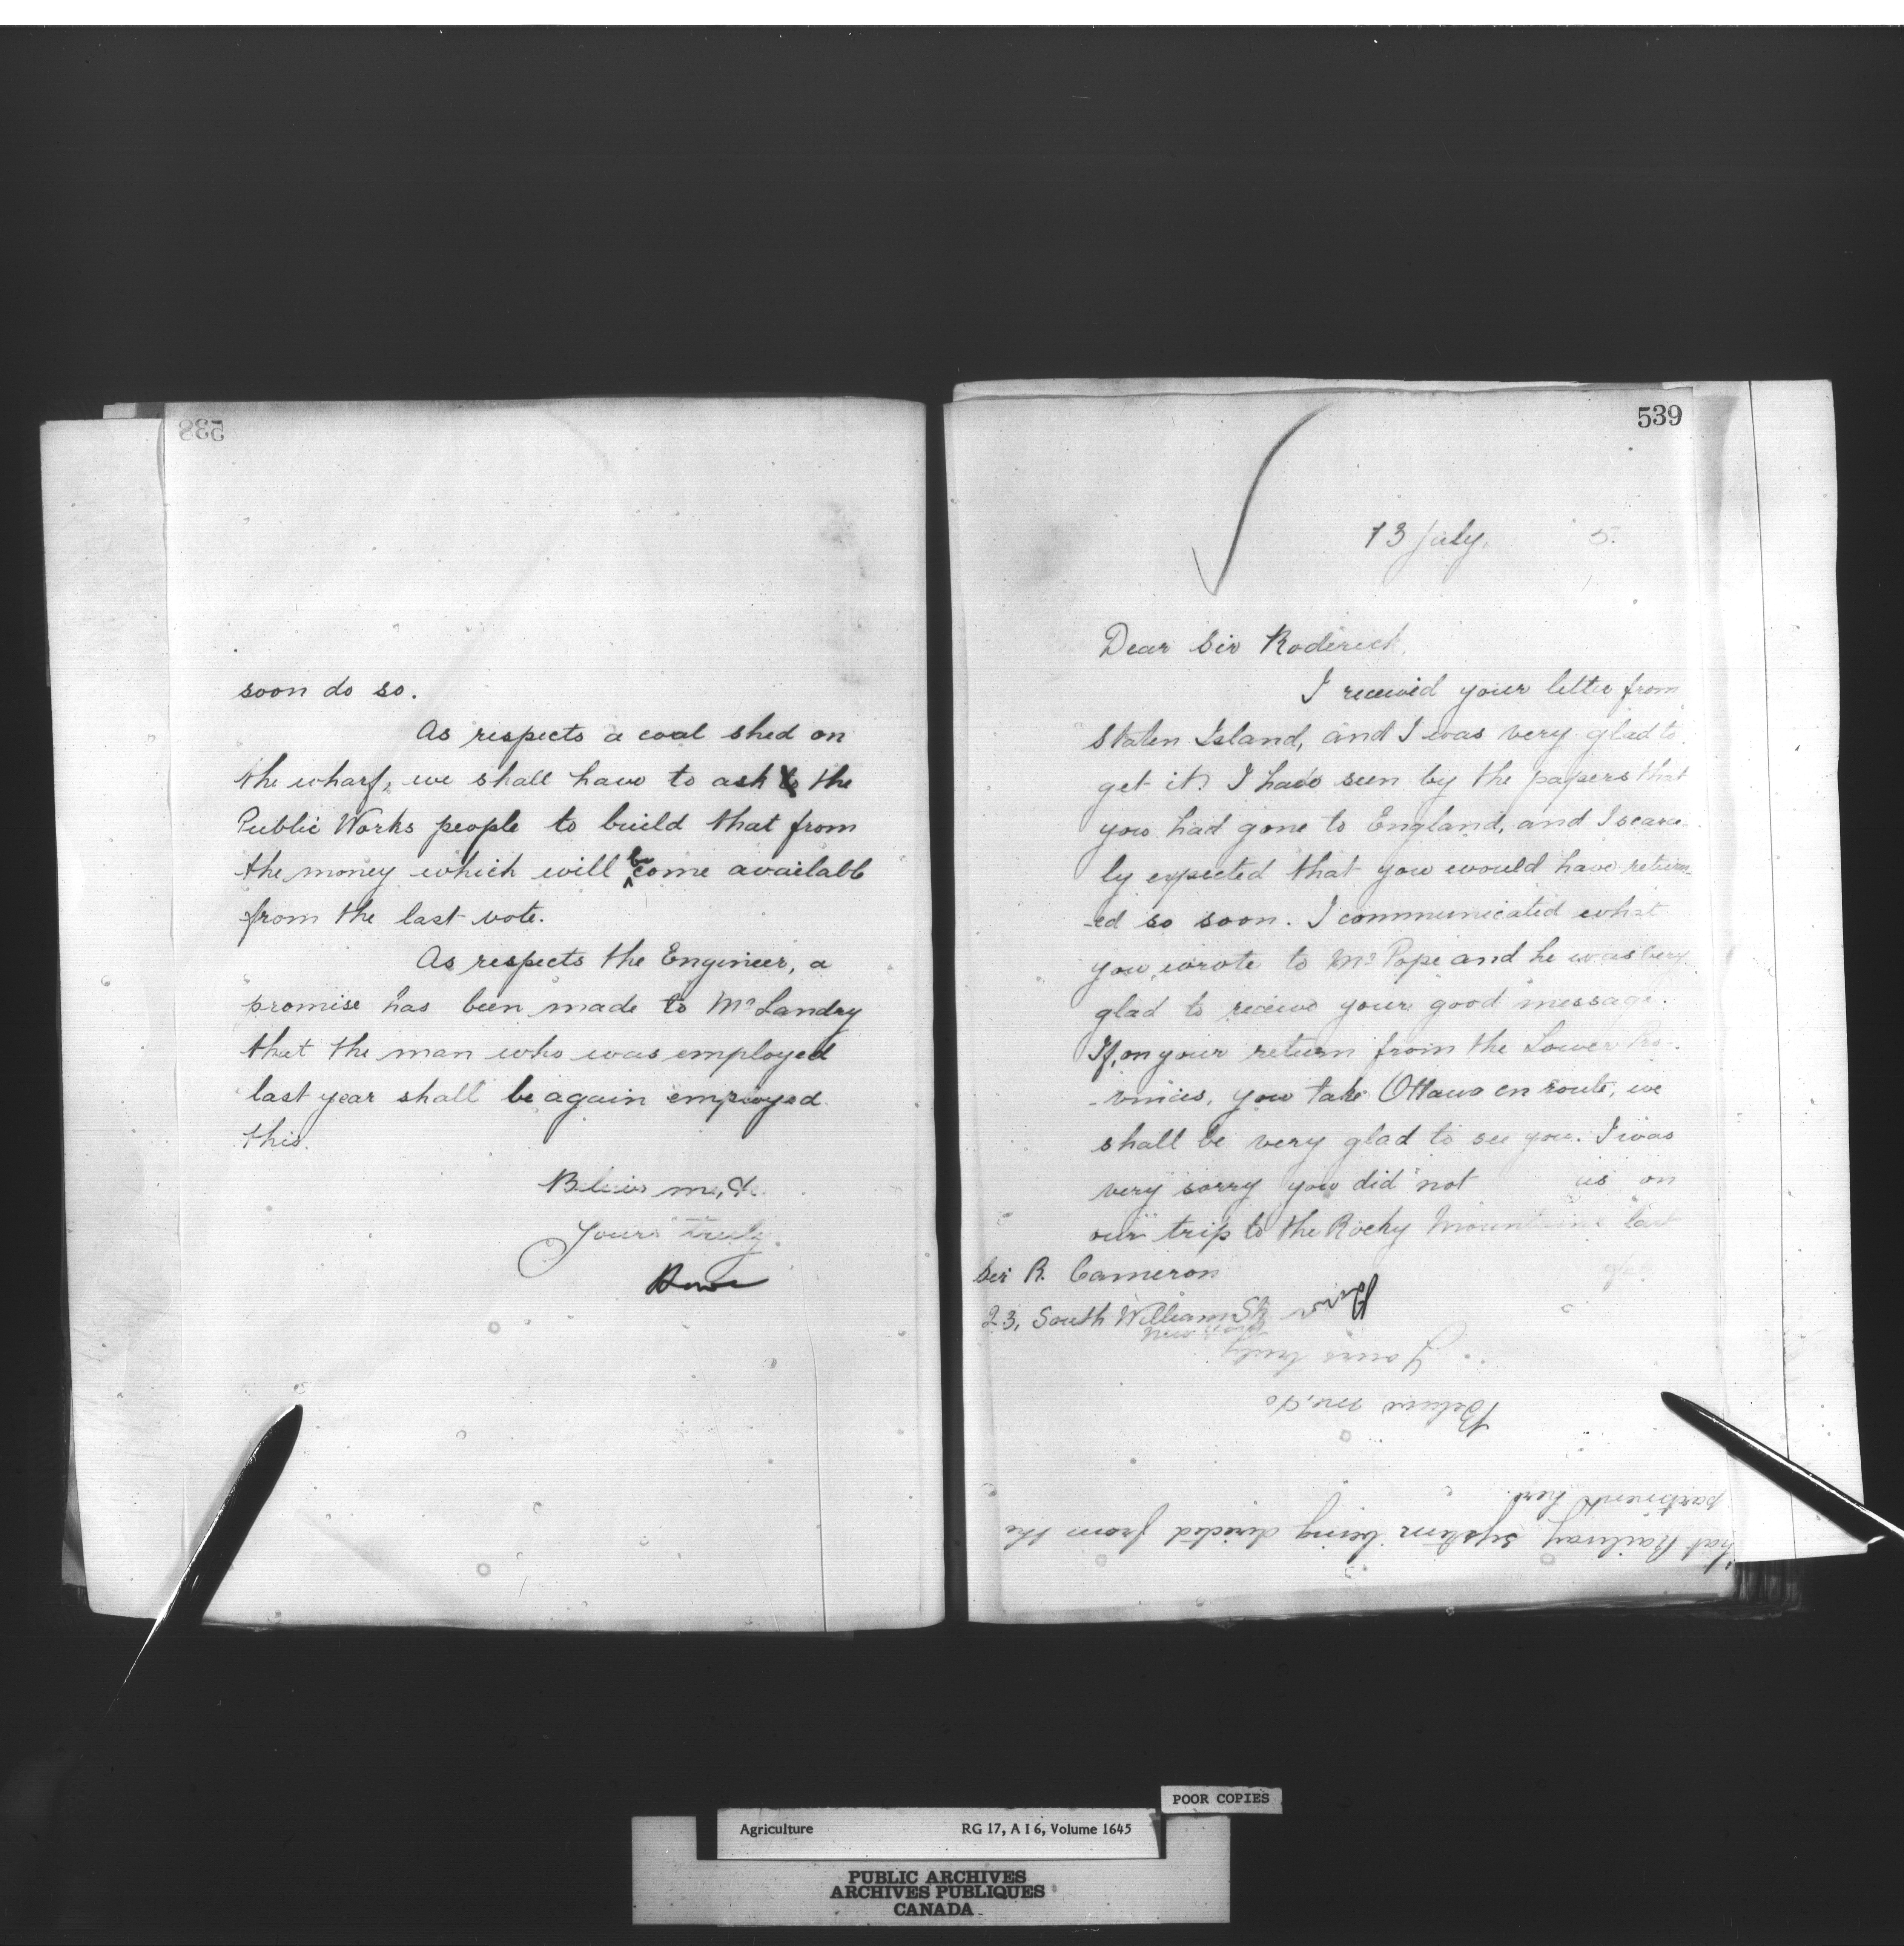 538
soon do so.
As respects a coal shed on
the wharf, we shall have to ask the
Public Works people to build that from
the money which will become available
from the last vote.
As respects the Engineer, a
promise has been made to Mr Landry
that the man who was employed
last year shall be again employed
this.
Believe me, &c.
Yours truly.
539
13 July, 5.
Dear Sir Roderick,
I received your letter from
Staten Island, and I was very glad to
get it. I have seen by the papers that
you had gone to England, and I scarce-
ly expected that you would have return-
-ed so soon. I communicated what
you wrote to Mr Pope and he was very
glad to receive your good message.
If, on your return from the Lower Pro-
-vinces, you take Ottawa en route, we
shall be very glad to see you. I was
very sorry you did not us on
our trip to the Rocky Mountains last
Sir R. Cameron
23, South William St
New York
that Railway system being directed from the
partment here.
Believe me, &c
Yours truly
Agriculture RG 17, A I 6, Volume 1645
POOR COPIES
PUBLIC ARCHIVES
ARCHIVES PUBLIQUES
CANADA